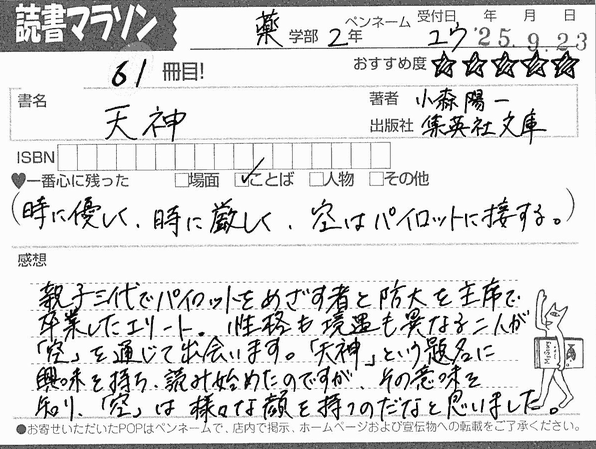 読書マラソン
薬 学部 2年
ペンネーム ユウ
受付日 年 月 日
'25.9.23
61 冊目!
おすすめ度 ☆☆☆☆☆
書名 天神
著者 小森陽一
出版社 集英社文庫
ISBN
♥一番心に残った □場面 ☑ことば □人物 □その他
(時に優しく、時に厳しく、空はパイロットに接する。)
感想
親子三代でパイロットをめざす者と防大を主席で
卒業したエリート。性格も境遇も異なる二人が
「空」を通じて出会います。「天神」という題名に
興味を持ち、読み始めたのですが、その意味を
知り、「空」は様々な顔を持つのだなと思いました。
●お寄せいただいたPOPはペンネームで、店内で掲示、ホームページおよび宣伝物への転載をご了承ください。